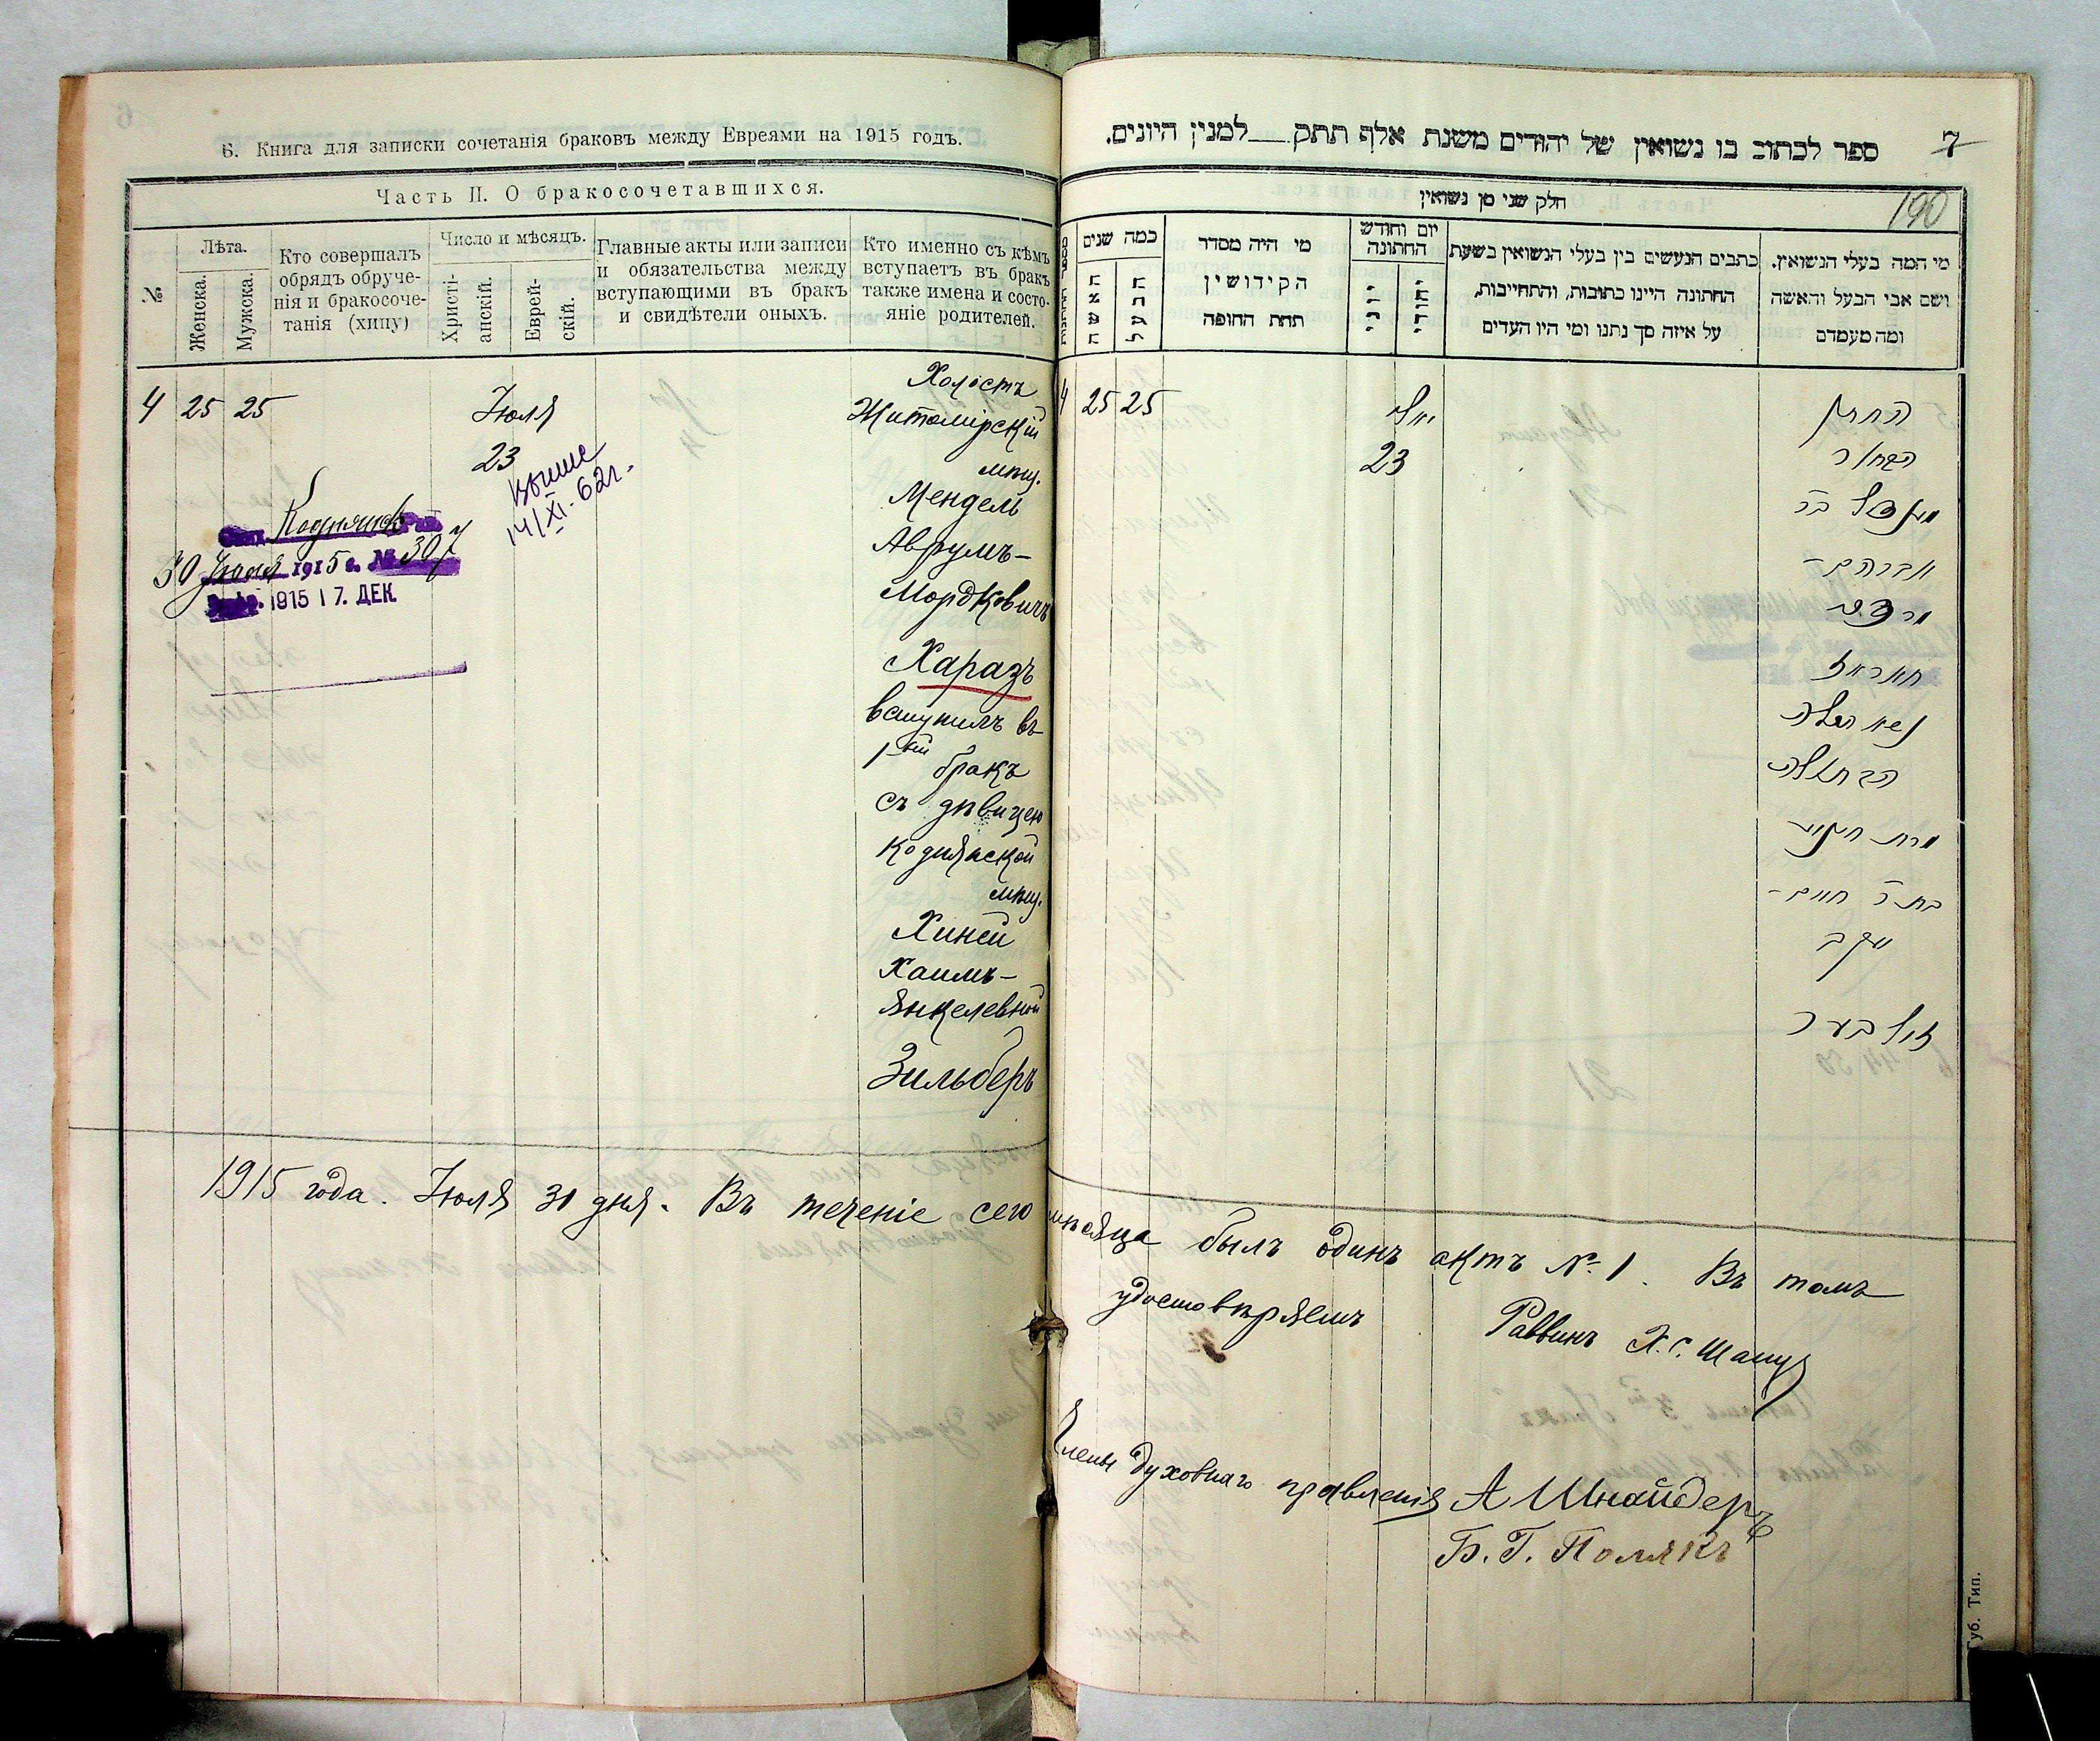 6. Книга для записки сочетанія браковъ между Евреями на 1915 годъ.
Часть II. О бракосочетавшихся.
№
Лѣта.
Женска.
Мужска.
Кто совершалъ
обрядъ обруче-
нія и бракосоче-
танія (хипу)
Число и мѣсяцъ.
Христі-
анскій.
Еврей-
скій.
Главные акты или записи
и обязательства между
вступающими въ бракъ
и свидѣтели оныхъ.
Кто именно съ кѣмъ
вступаетъ въ бракъ
также имена и состо-
яніе родителей.
4 25 25
Іюля
23
14/XI. 62 г.
30 Іюля 1915 г. № 307
1915 17. ДЕК.
Холостъ
Житомірскій
мѣщ.
Мендель
Аврумъ-
Мордковичъ
Харазъ
вступилъ въ
1ый бракъ
съ дѣвицею
Коднянской
мѣщ.
Хиней
Хаимъ-
Янкелевной
Зильберъ
1915 года. Іюля 31 дня. Въ теченіе сего мѣсяца былъ одинъ актъ № 1. Въ томъ
удостовѣряемъ
Раввинъ Х. С.
Члены духовнаго правленія А Шнайдеръ
Б. Г. Полякъ
7
ספר לכתוב בו נשואין של יהודים משנת אלף תתק למנין היונים.
190
חלק שני מן נשואין
כמה שנים
האשה
הבעל
מי היה מסדר
הקידושין
תחת החופה
יום וחודש
החתונה
יוני
יהודי
כתבים הנעשים בין בעלי הנשואין בשעת
החתונה היינו כתובות, והתחייבות,
על איזה סך נתנו ומי היו העדים
מי המה בעלי הנשואין.
ושם אבי הבעל והאשה
ומה מעמדם
4 25 25
יול
23
החתן
הבחור
מענדל בר
אברהם-
מרדכי
חאראז
נשא השלה
הבתולה
מרת חינע
בת ר חיים-
יעקב
זילבער
Губ. Тип.